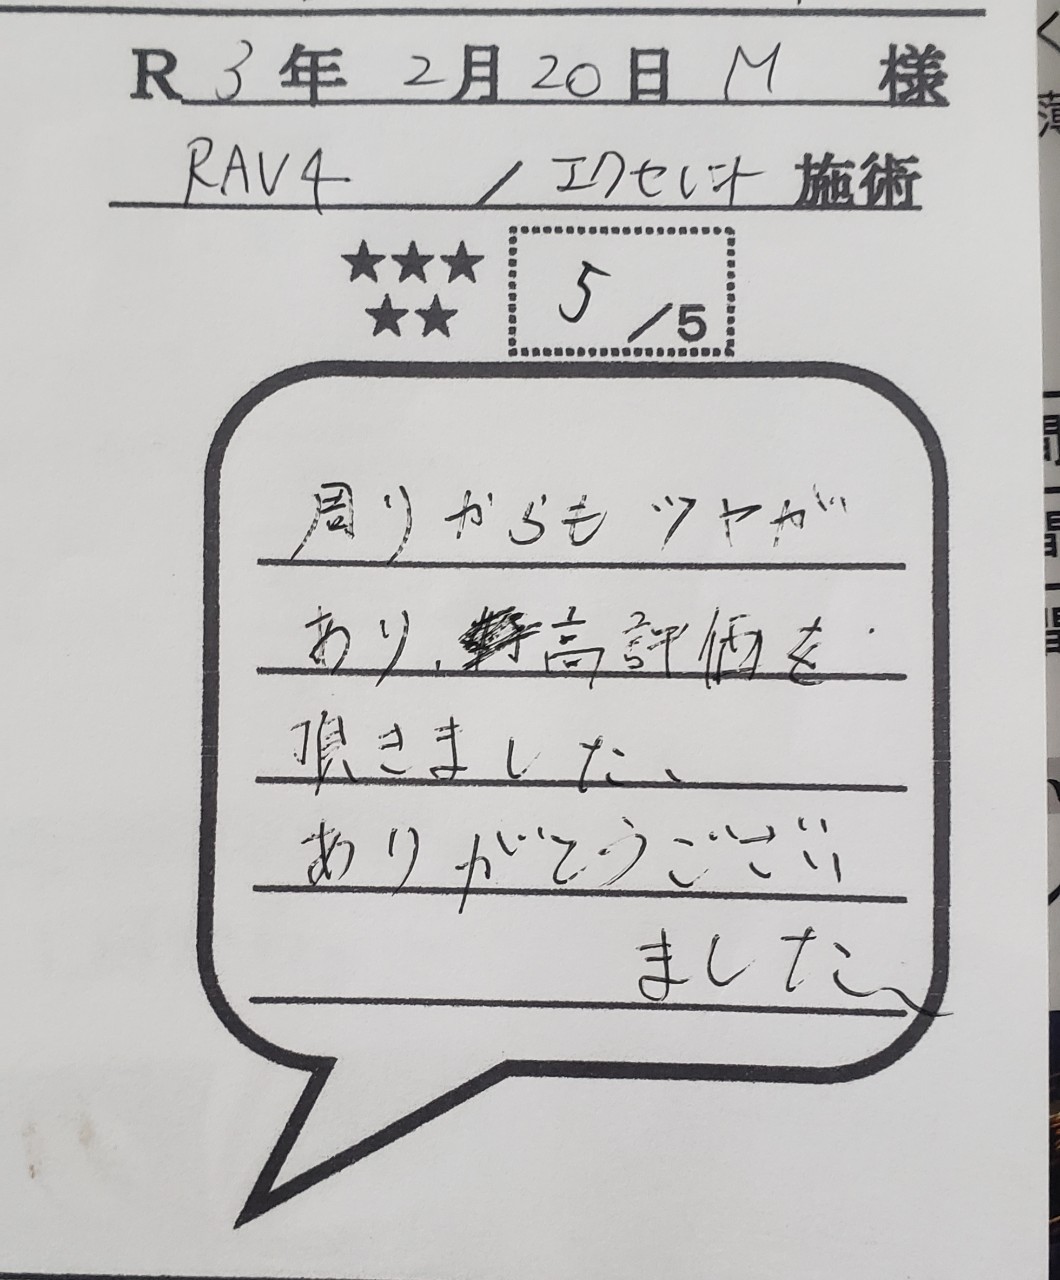 R 3年 2月20日 M 様
RAV4 / エクセレント 施術
★★★
★★
5/5
周りからもツヤが
あり、高評価を
頂きました、
ありがとうござい
ました